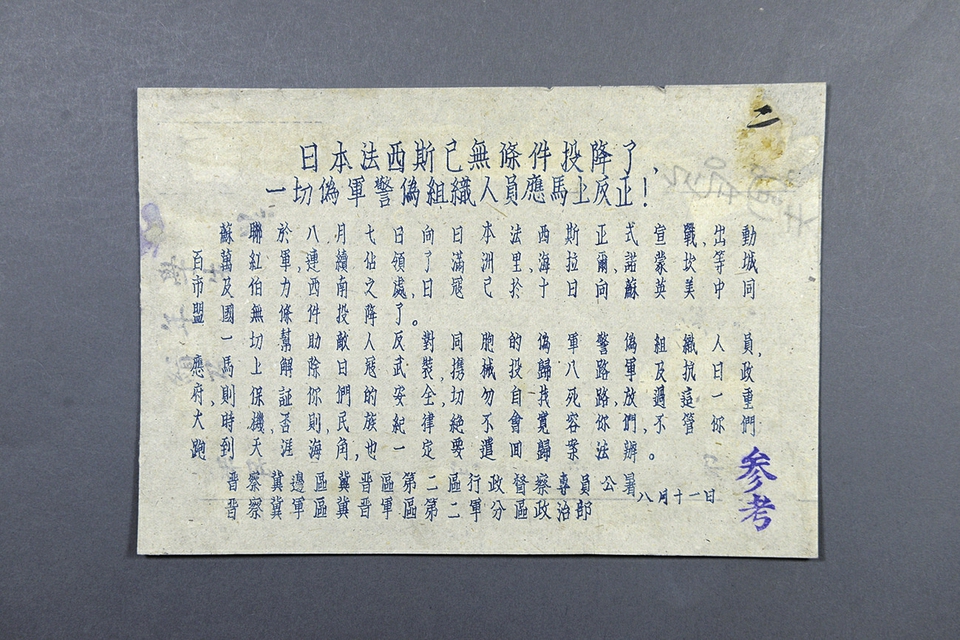 二
日本法西斯已無條件投降了、
一切偽軍警偽組織人員應馬上反正!
蘇聯於八月七日向日本法西斯正式宣戰,出動
百萬紅軍,連續佔領了滿洲里,海拉爾,諾蒙坎等城
市及伯力西南之處。日冦已於十日向蘇英美中同
盟國無條件投降了。
一切幫助敵人反對同胞的偽軍警偽組織人員,
應馬上解除日冦武裝,携械投歸八路軍及抗日政
府,則保証你們的安全,切勿自找死路放過這一重
大時機,否則,民族紀律絕不會寬容你們,不管你們
跑到天涯海角,也一定要遣回歸案法辦。
晋察冀邊區冀晋區第二區行政督察專員公署
晋察冀軍區冀晋軍區第二軍分區政治部
八月十一日
参考